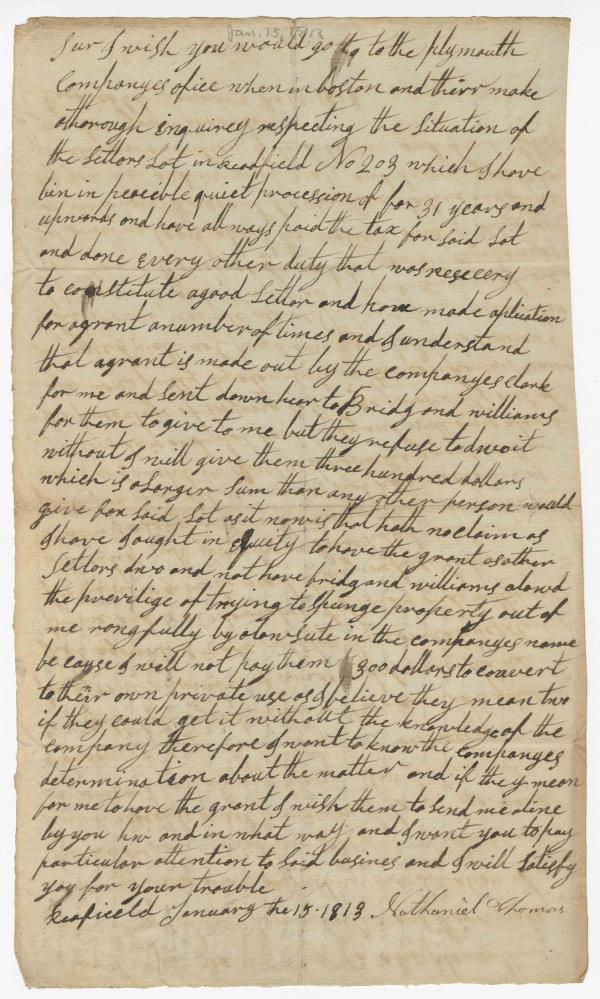 Jan. 15, 1813
Sur I wish you would go to to the plymouth
Companyes ofice when in boston and therr make
athorough inquirey respecting the Situation of
the Settlors Lot in Readfield No 203 which I have
bin in peacible quiet procession of for 31 years and
upwards and have all ways paid the tax for Said Lot
and done every other duty that was nesecery
to constitute agood Settlor and have made aplication
for agrant anumber of times and I understand
that agrant is made out by the companyes clark
for me and Sent down hear to Bridg and williams
for them to give to me but they refuse to dwo it
without I will give them three hundred dollars
which is aLarger Sum than any other person would
give for Said Lot as it now is that hath no claim as
I have I aught in equity to have the grant as other
Settlors dwo and not have bridg and williams alowd
the previlige of trying to Spunge property out of
me rongfully by alow Sute in the companyes name
be cause I will not pay them 300 dollars to convert
to their own private use as I believe they mean two
if they could get it without the knowledge of the
company therefore I want to know the companyes
determination about the matter and if they mean
for me to have the grant I wish them to Send me aline
by you hw and in what way and I want you to pay
particular attention to Said busines and I will Satisfy
yoy for your trouble
Readfieeld January the 15. 1813 Nathaniel Thomas